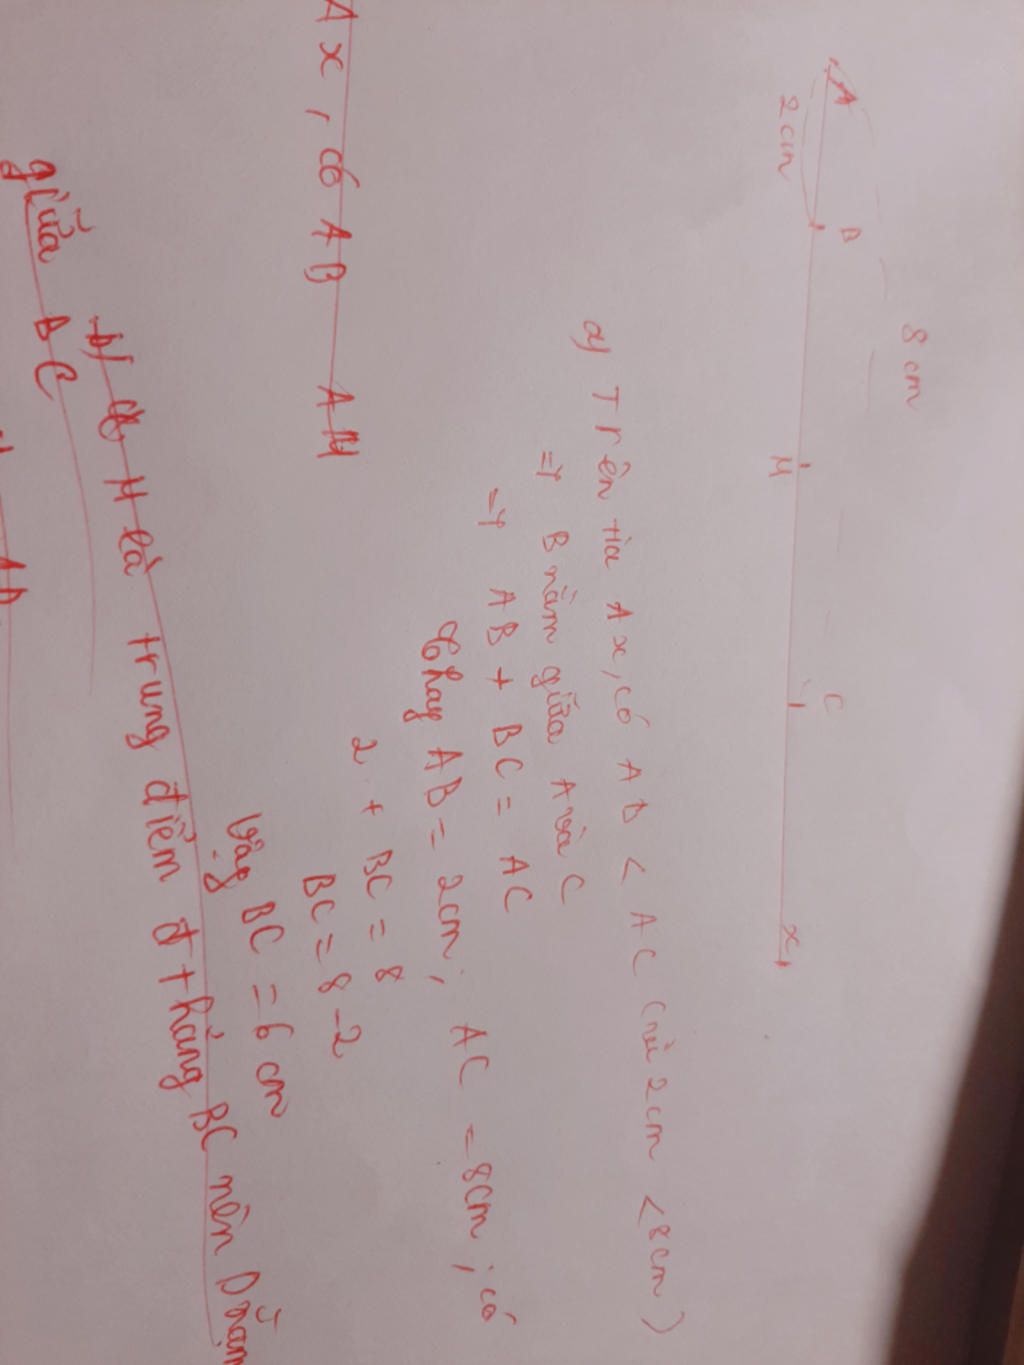 8 cm
A B M C x
2 cm
a) Trên tia Ax, có AB < AC (vì 2cm < 8cm)
=> B nằm giữa A và C
=> AB + BC = AC
Thay AB = 2cm, AC = 8cm, có
2 + BC = 8
BC = 8 - 2
Vậy BC = 6 cm
Ax, có AB AM
b) M là trung điểm đ thẳng BC nên D nằm
giữa BC